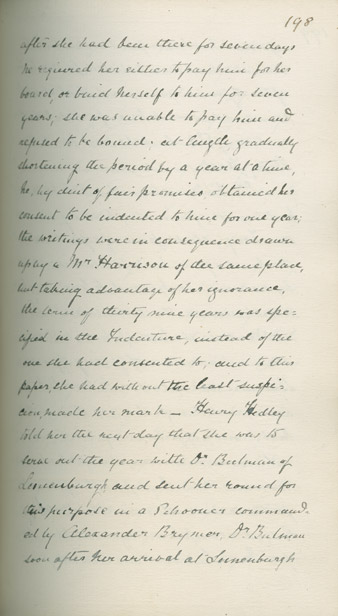 198
after she had been there for seven days
he required her either to pay him for her
board, or bind herself to him for seven
years; she was unable to pay him and
refused to be bound. at length gradually
shortening the period by a year at a time,
he, by dint of fair promises obtained her
consent to be indented to him for one year;
the writings were in consequence drawn
up by a Mr Harrison of the same place,
but taking advantage of her ignorance,
the term of thirty nine years was spe=
ified in the Indenture, instead of the
one she had consented to; and to this
paper, she had without the least suspi=
cion, made her mark — Harry Hedley
told her the next day that she was to
serve out the year with Dr Bulman of
Lunenburgh and sent her round for
this purpose in a Schooner command=
ed by Alexander Brymer, Dr Bulman
soon after her arrival at Lunenburgh